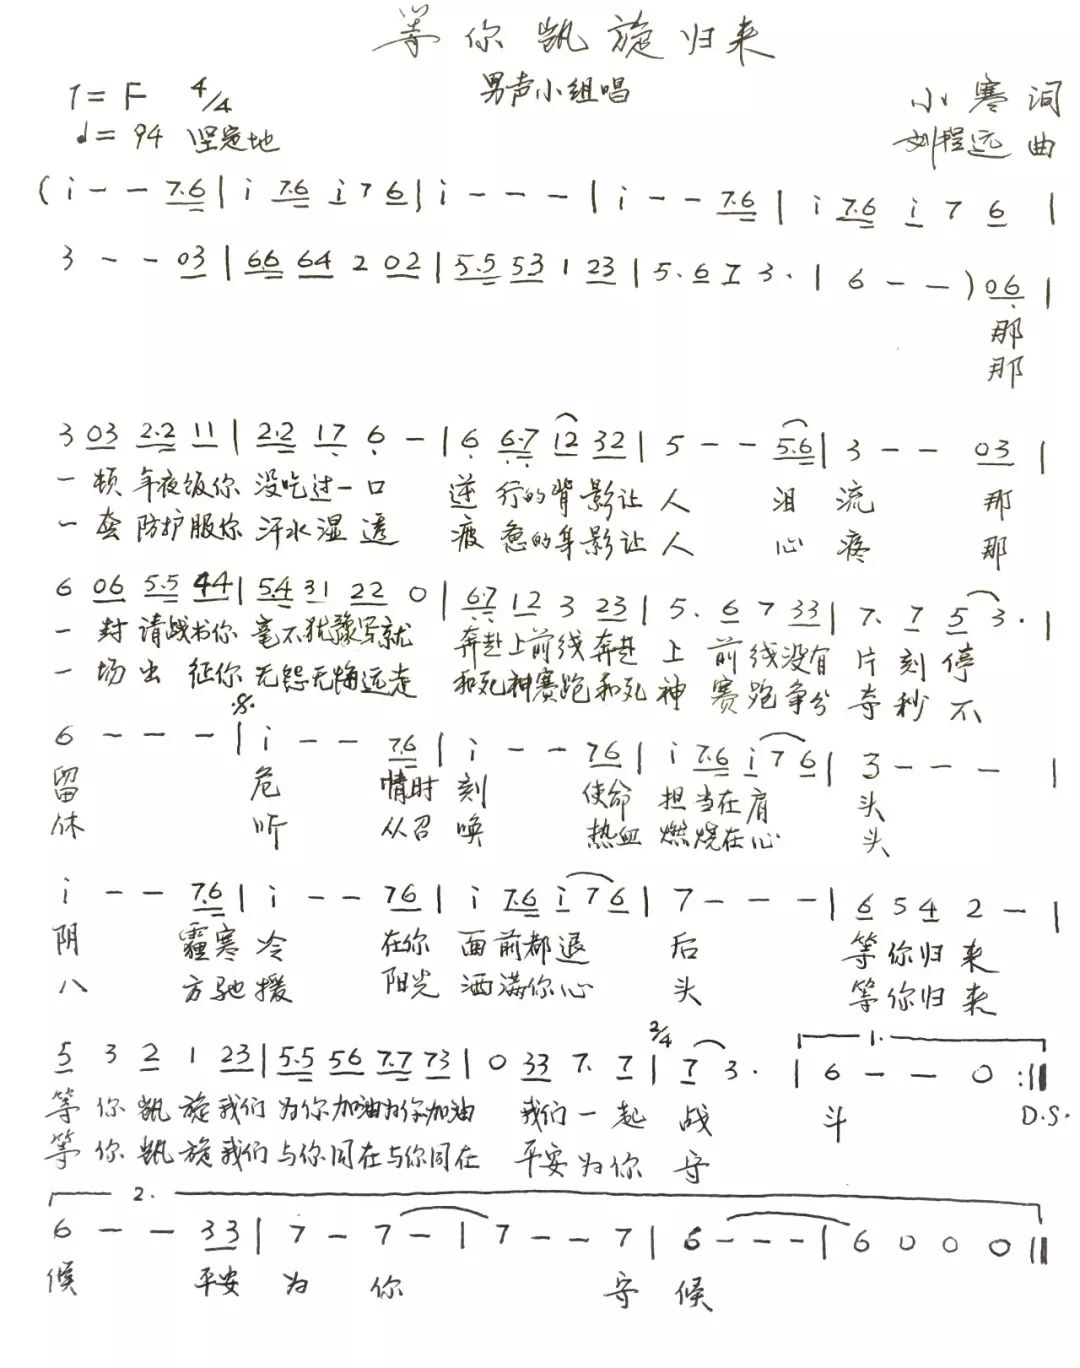 等你凯旋归来
男声小组唱
1=F 4/4
小寒词
♩=94 坚定地
刘程远曲
(i - - 7.6 | i 7.6 i 7 6 | i - - - | i - - 7.6 | i 7.6 i 7 6 |
3 - - 03 | 66 64 2 02 | 5.5 53 1 23 | 5. 6 1 3. | 6 - - ) 06 |
那
那
3 03 2.2 11 | 2.2 17 6 - | 6 6.7 12 32 | 5 - - 5.6 | 3 - - 03 |
一顿年夜饭你没吃过一口 逆行的背影让人 泪流 那
一套防护服你汗水湿透 疲惫的身影让人 心疼 那
6 06 5.5 44 | 5.4 31 22 0 | 6.7 12 3 23 | 5. 6 7 33 | 7. 7 5 3. |
一封请战书你毫不犹豫写就 奔赴上前线奔赴上前线没有片刻停
一场出征你无怨无悔远走 和死神赛跑和死神赛跑争分夺秒不
𝄋
6 - - - | i - - 7.6 | i - - 76 | i 7.6 i 7 6 | 3 - - - |
留 危 情时刻 使命担当在肩 头
休 听 从召唤 热血燃烧在心 头
i - - 7.6 | i - - 76 | i 7.6 i 7 6 | 7 - - - | 6 5 4 2 - |
阴 霾寒冷 在你面前都退 后 等你归来
八 方驰援 阳光洒满你心 头 等你归来
2/4
1.
5 3 2 1 23 | 5.5 56 7.7 73 | 0 33 7. 7 | 7 3. | 6 - - 0 :||
等你凯旋我们为你加油为你加油 我们一起战 斗 D.S.
等你凯旋我们与你同在与你同在 平安为你守
2.
6 - - 33 | 7 - 7 - | 7 - - 7 | 6 - - - | 6 0 0 0 ||
候 平安为 你 守候